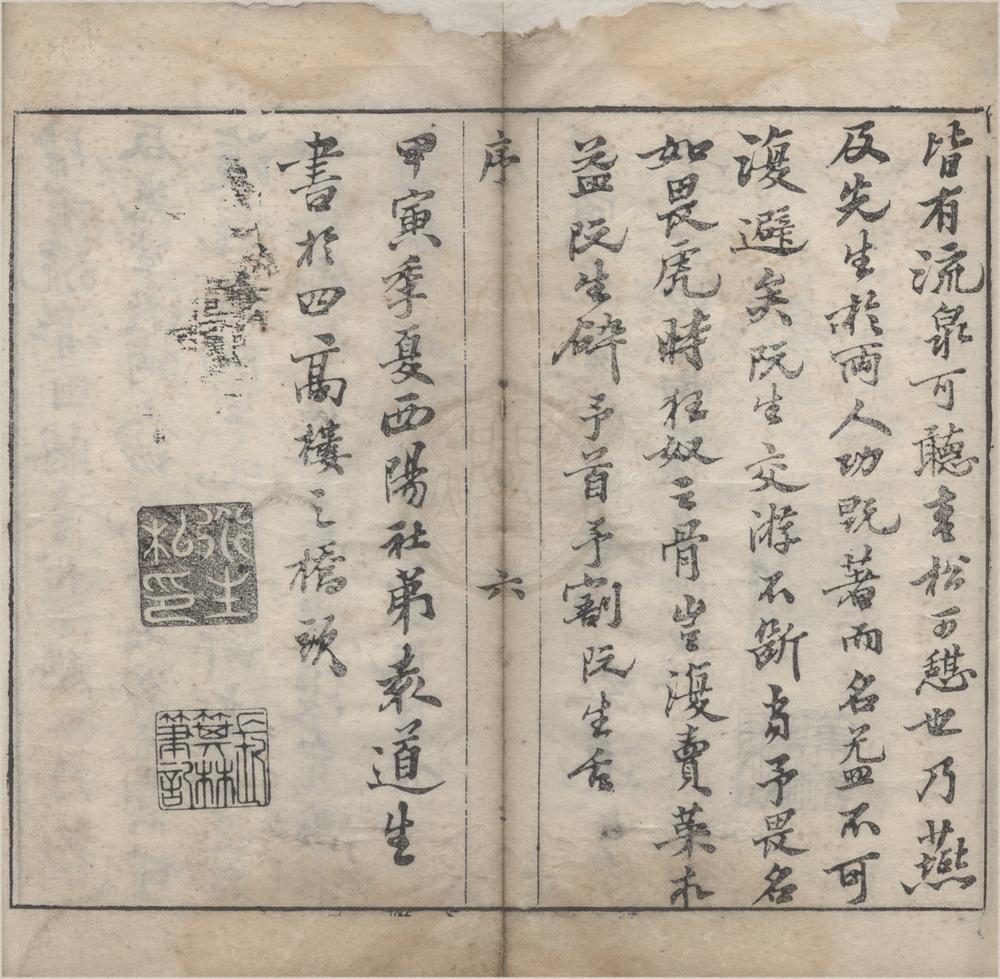 皆有流泉可聽青松可憩也乃燕
及先生於兩人功既著而名益不可
復避矣阮生交游不斷當予畏名
如畏虎時狂奴之骨豈復賣菜求
益阮生碎予首予割阮生舌
序
六
甲寅季夏西陽社弟袁道生
書於四高樓之橋頭
道生
私印
長山
箕林
筆記